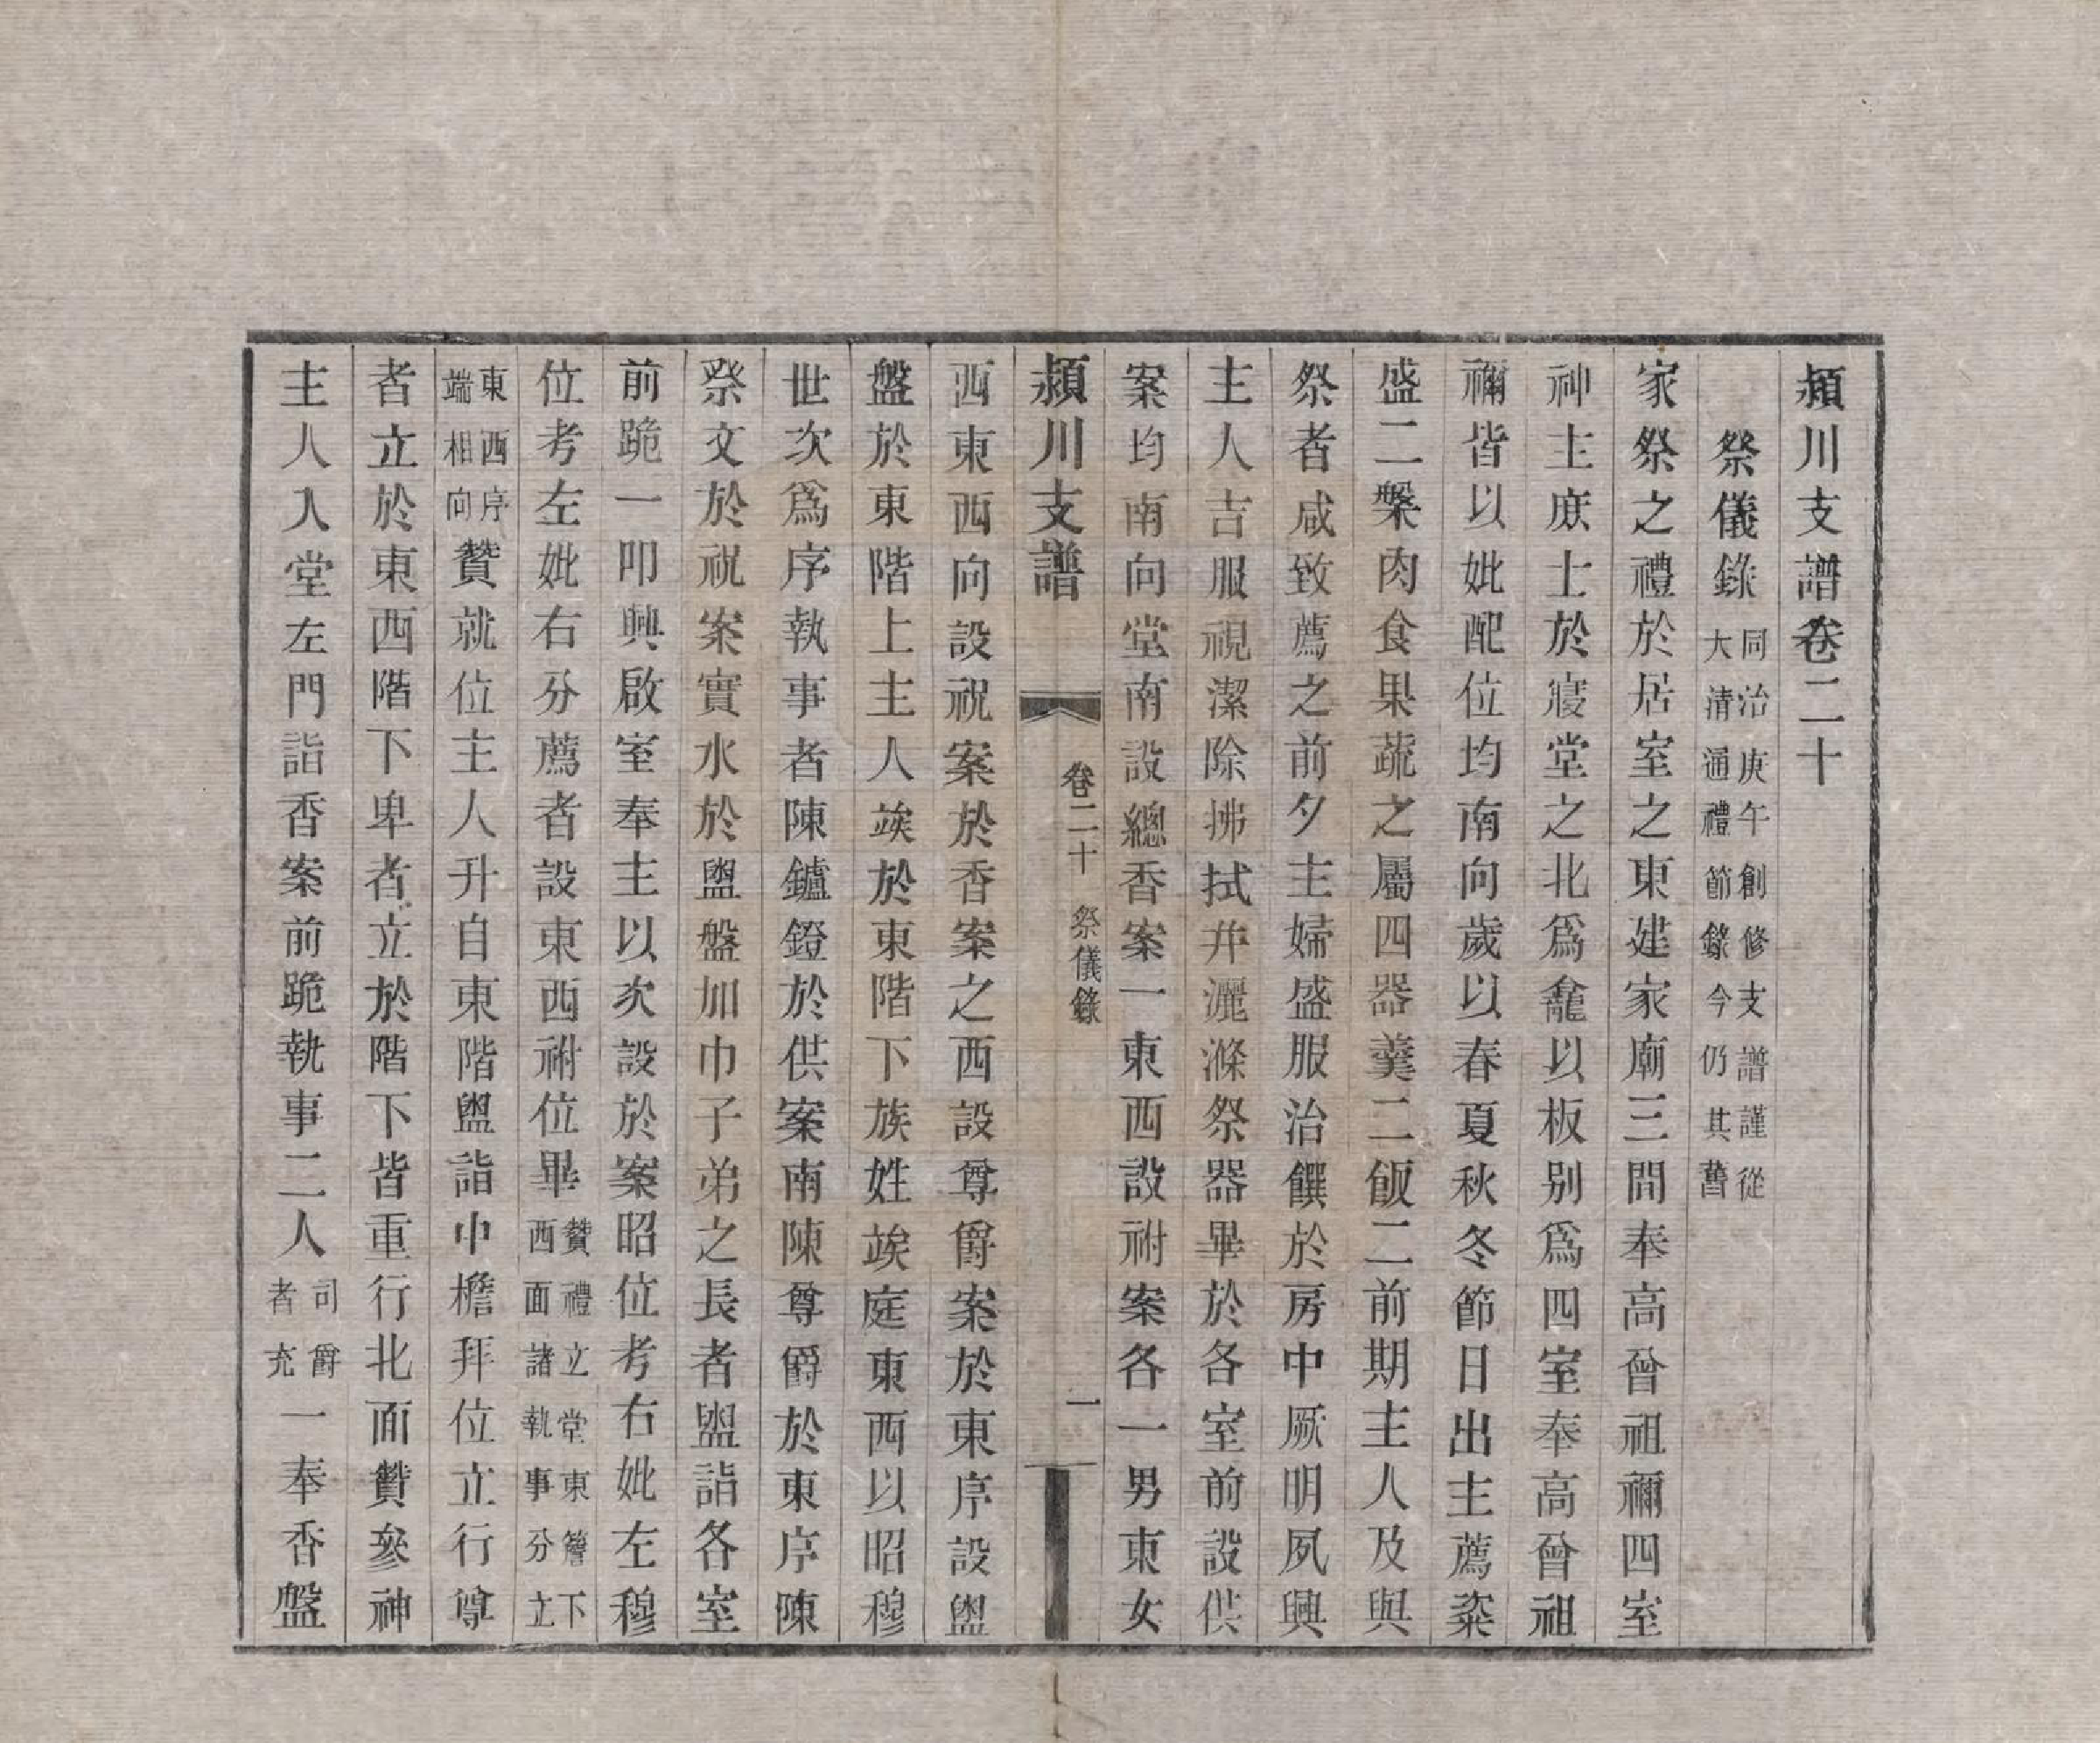 潁川支譜卷二十
祭儀錄 同治庚午創修支譜謹從
大清通禮節錄今仍其舊
家祭之禮於居室之東建家廟三間奉高曾祖禰四室
神主庶士於寢堂之北爲龕以板别爲四室奉高曾祖
禰皆以妣配位均南向歲以春夏秋冬節日出主薦粢
盛二槃肉食果蔬之屬四器羹二飯二前期主人及與
祭者咸致薦之前夕主婦盛服治饌於房中厥明夙興
主人吉服視潔除拂拭并灑滌祭器畢於各室前設供
案均南向堂南設總香案一東西設祔案各一男東女
潁川支譜 卷二十 祭儀錄 一
西東西向設祝案於香案之西設尊爵案於東序設盥
盤於東階上主人竢於東階下族姓竢庭東西以昭穆
世次爲序執事者陳鑪鐙於供案南陳尊爵於東序陳
祭文於祝案實水於盥盤加巾子弟之長者盥詣各室
前跪一叩興啟室奉主以次設於案昭位考右妣左穆
位考左妣右分薦者設東西祔位畢 贊禮立堂東簷下
西面諸執事分立
東西序
端相向 贊就位主人升自東階盥詣巾檐拜位立行尊
者立於東西階下卑者立於階下皆重行北面贊參神
主人入堂左門詣香案前跪執事二人 司爵
者充 一奉香盤